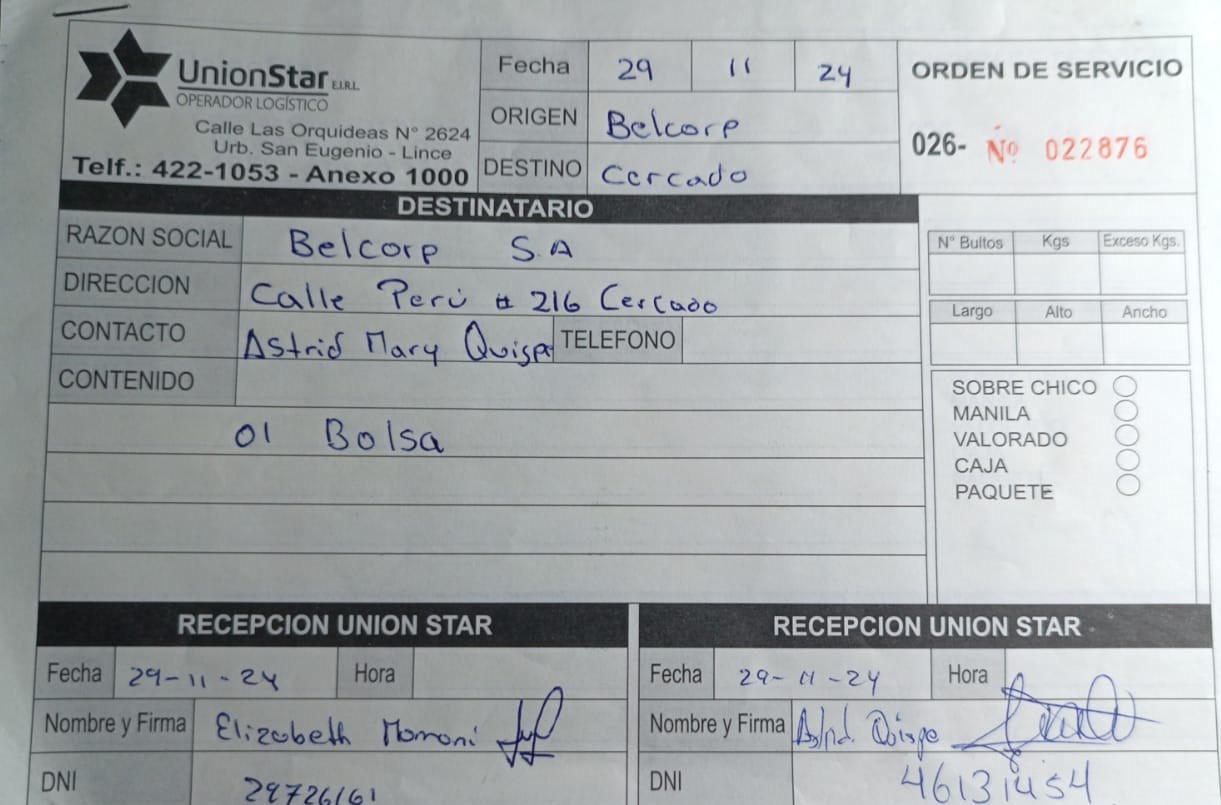 UnionStar E.I.R.L.
OPERADOR LOGÍSTICO
Calle Las Orquideas N° 2624
Urb. San Eugenio - Lince
Telf.: 422-1053 - Anexo 1000
Fecha 29 11 24
ORIGEN Belcorp
DESTINO Cercado
ORDEN DE SERVICIO
026- Nº 022876
DESTINATARIO
RAZON SOCIAL Belcorp S.A
DIRECCION Calle Perú # 216 Cercado
CONTACTO Astrid Mary Quispe TELEFONO
CONTENIDO
01 Bolsa
N° Bultos Kgs Exceso Kgs.
Largo Alto Ancho
SOBRE CHICO
MANILA
VALORADO
CAJA
PAQUETE
RECEPCION UNION STAR
Fecha 29-11-24 Hora
Nombre y Firma Elizabeth Mamani
DNI 29726161
RECEPCION UNION STAR
Fecha 29-11-24 Hora
Nombre y Firma Astrid. Quispe
DNI 46131454